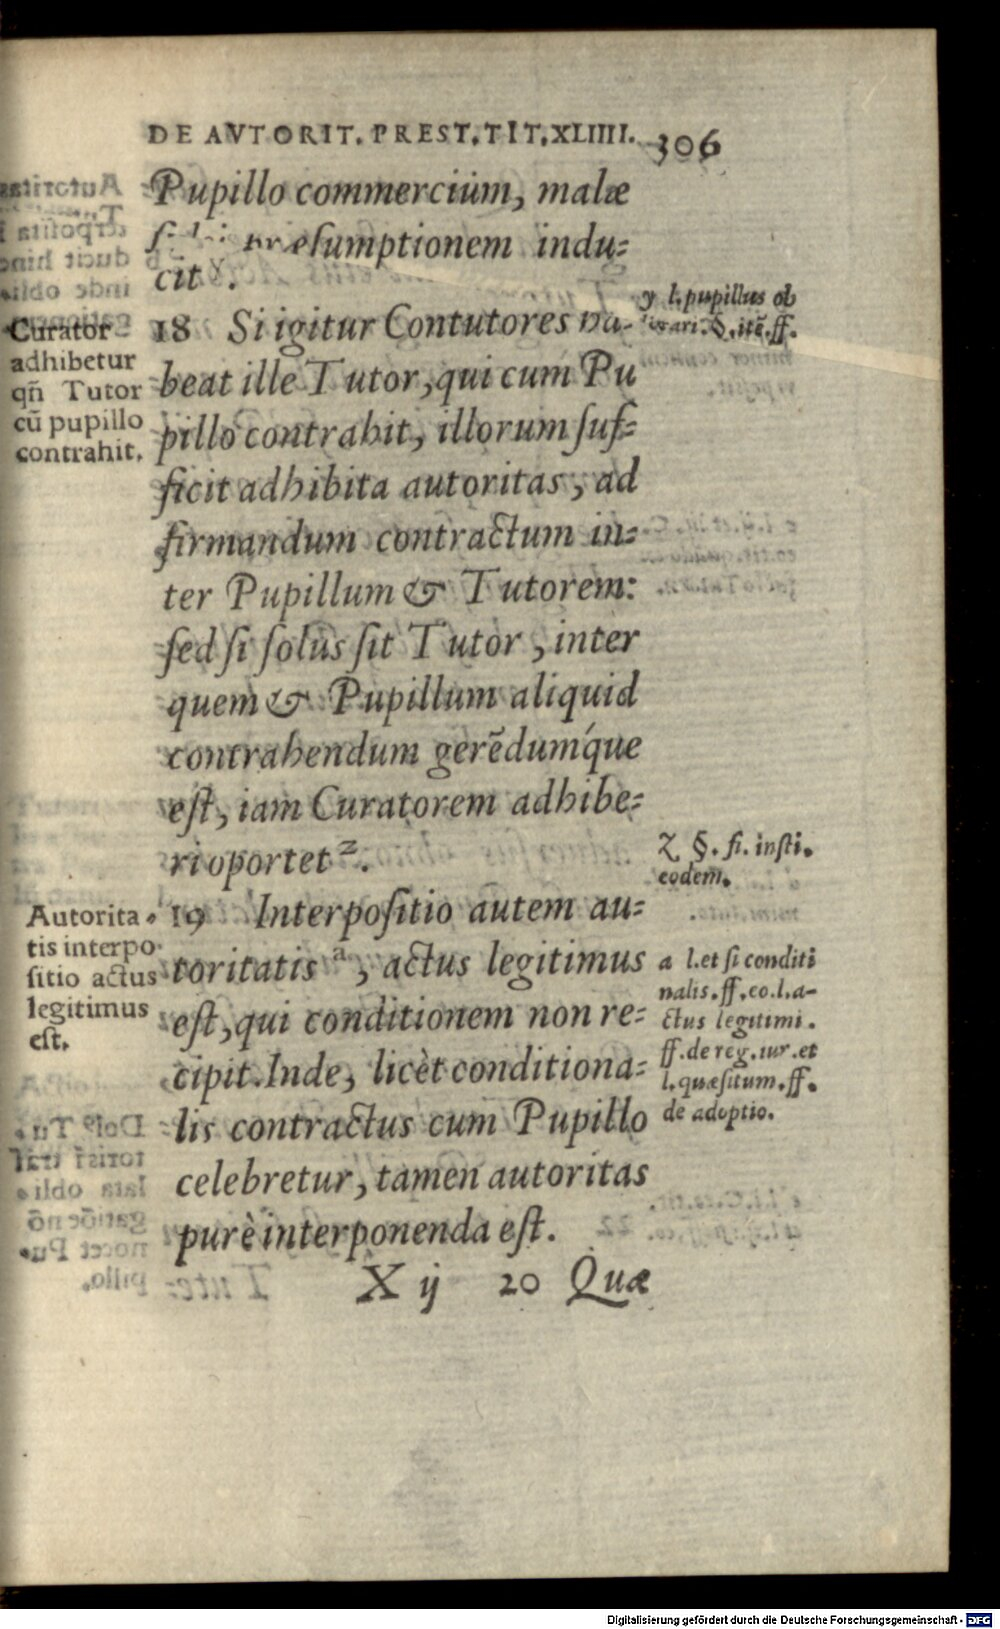 DE AVTORIT. PREST. TIT. XLIIII. 306
Pupillo commercium, malæ
præsumptionem indu⸗
cit y.
y l. pupillus ob
§. itē. ff.
Curator
adhibetur
qñ Tutor
cū pupillo
contrahit.
18 Si igitur Contutores ha⸗
beat ille Tutor, qui cum Pu
pillo contrahit, illorum suf⸗
ficit adhibita autoritas, ad
firmandum contractum in⸗
ter Pupillum & Tutorem:
sed si solus sit Tutor, inter
quem & Pupillum aliquid
contrahendum gerēdumq́ue
est, iam Curatorem adhibe⸗
ri oportet z.
z §. fi. insti.
eodem.
Autorita⸗
tis interpo⸗
sitio actus
legitimus
est.
19 Interpositio autem au⸗
toritatis a, actus legitimus
est, qui conditionem non re⸗
cipit. Inde, licèt conditiona⸗
lis contractus cum Pupillo
celebretur, tamen autoritas
purè interponenda est.
a l. et si conditi
nalis. ff. eo. l. a-
ctus legitimi.
ff. de reg. iur. et
l. quæsitum. ff.
de adoptio.
X ij 20 Quæ
Digitalisierung gefördert durch die Deutsche Forschungsgemeinschaft - DFG